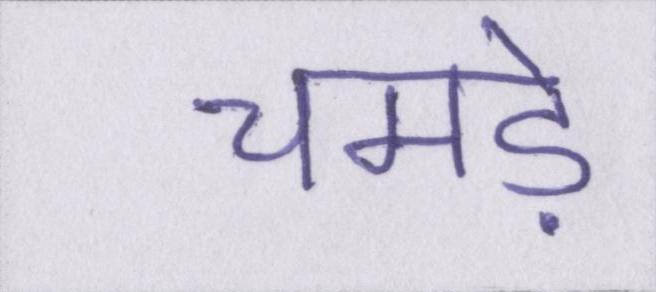 चमड़े